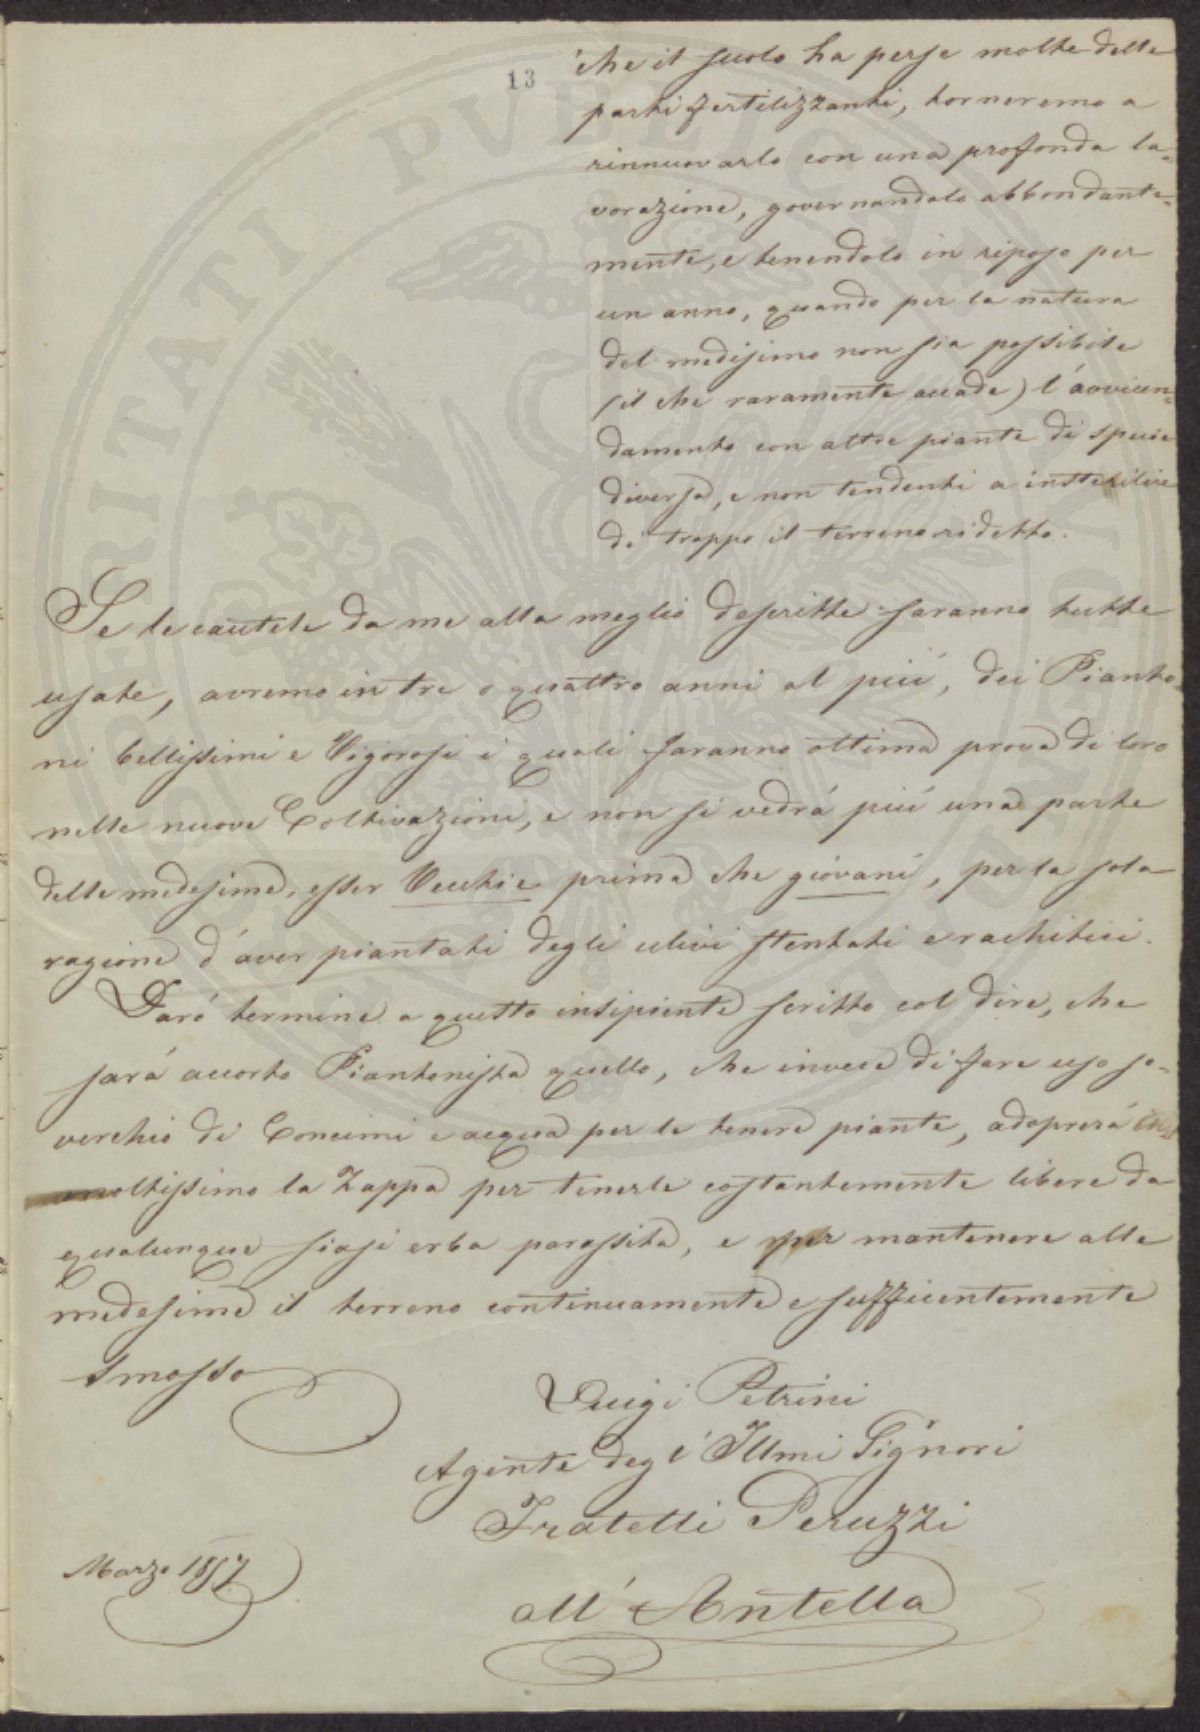 13
che il suolo ha perse molte delle
parti fertilizzanti, torneremo a
rinnuovarlo con una profonda la=
vorazione, governandolo abbondante=
mente, e tenendolo in riposo per
un anno, quando per la natura
del medisimo non sia possibile
(il che raramente accade) l'avvicen=
damento con altre piante di specie
diversa, e non tendenti a insterilire
di troppo il terreno ridetto.
Se le cautele da me alla meglio descritte saranno tutte
usate, avremo in tre o quattro anni al più, dei Pianto=
ni bellissimi e Vigorosi i quali faranno ottima prova di loro
nelle nuove Coltivazioni, e non si vedrà più una parte
delle medesime, esser Vecchie prima che giovani, per la sola
ragione d'aver piantati degli ulivi stentati e rachitici.
Darò termine a questo insipiente scritto col dire, che
sarà accorto Piantonista quello, che invece di fare uso so=
verchio di Concimi e acqua per le tenere piante, adoprerà
moltissimo la Zappa per tenerle costantemente libere da
qualunque siasi erba parassita, e per mantenere alle
medesime il terreno continuamente e sufficentemente
smosso
Luigi Petrini
Agente degl'Illmi Signori
Fratelli Peruzzi
all'Antella
Marzo 1857
PROSPERITATI PVBLICAE